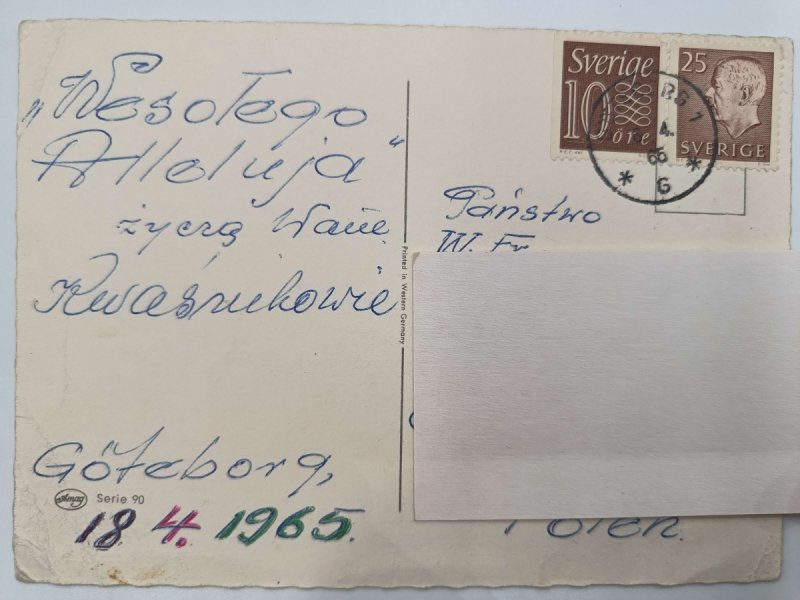 „Wesołego
Alleluja"
życzą Wam
Kwaśnikowie
Göteborg,
18. 4. 1965.
Amag
Serie 90
Printed in Western Germany
Sverige
10
öre
25
SVERIGE
RG 1
4
65
* G *
Państwo
W. Fr
Polen.